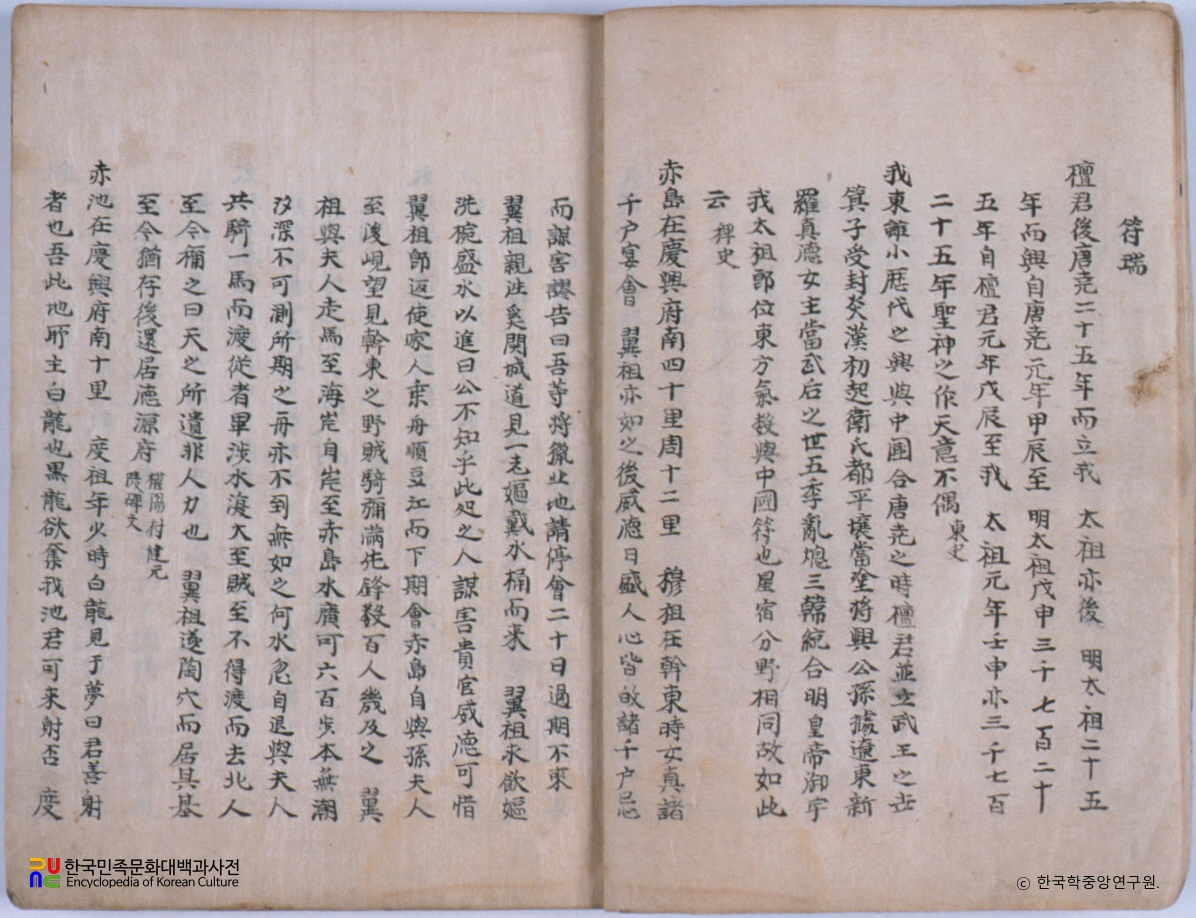 符瑞
檀君後唐堯二十五年而立我 太祖亦後 明太祖二十五
年而興自唐堯元年甲辰至 明太祖戊申三千七百二十
五年自檀君元年戊辰至我 太祖元年壬申亦三千七百
二十五年聖神之作天意不偶 東史
我東雖小歷代之興與中國合唐堯之時檀君並立武王之世
箕子受封炎漢初起衛氏都平壤當塗將興公孫據遼東新
羅真德女主當武后之世五季亂熄三韓統合明皇帝御宇
我太祖卽位東方氣數與中國符也星宿分野相同故如此
云 稗史
赤島在慶興府南四十里周十二里 穆祖在斡東時女真諸
千户宴會 翼祖亦如之後威德日盛人心皆歸諸千户忌
而謀害謬告曰吾等將獵北地請停會二十日過期不來
翼祖親往奚関城道見一老嫗戴水桶而来 翼祖求飲嫗
洗椀盛水以進曰公不知乎此处之人謀害貴官威德可惜
翼祖卽返使家人乗舟順豆江而下期會赤島自與孫夫人
至後峴望見斡東之野賊騎彌滿先鋒数百人幾及之 翼
祖與夫人走馬至海岸自岸至赤島水廣可六百步本無潮
汐深不可測所期之舟亦不到無如之何水忽自退與夫人
共騎一馬而渡從者畢涉水復大至賊至不得渡而去北人
至今稱之曰天之所遺非人力也 翼祖遂陶穴而居其基
至今猶存後還居德源府 陵碑文
赤池在慶興府南十里 度祖年少時白龍見于夢曰君善射
者也吾此地所主白龍也黒龍欲奪我池君可来射否 度
한국민족문화대백과사전
Encyclopedia of Korean Culture
ⓒ 한국학중앙연구원.